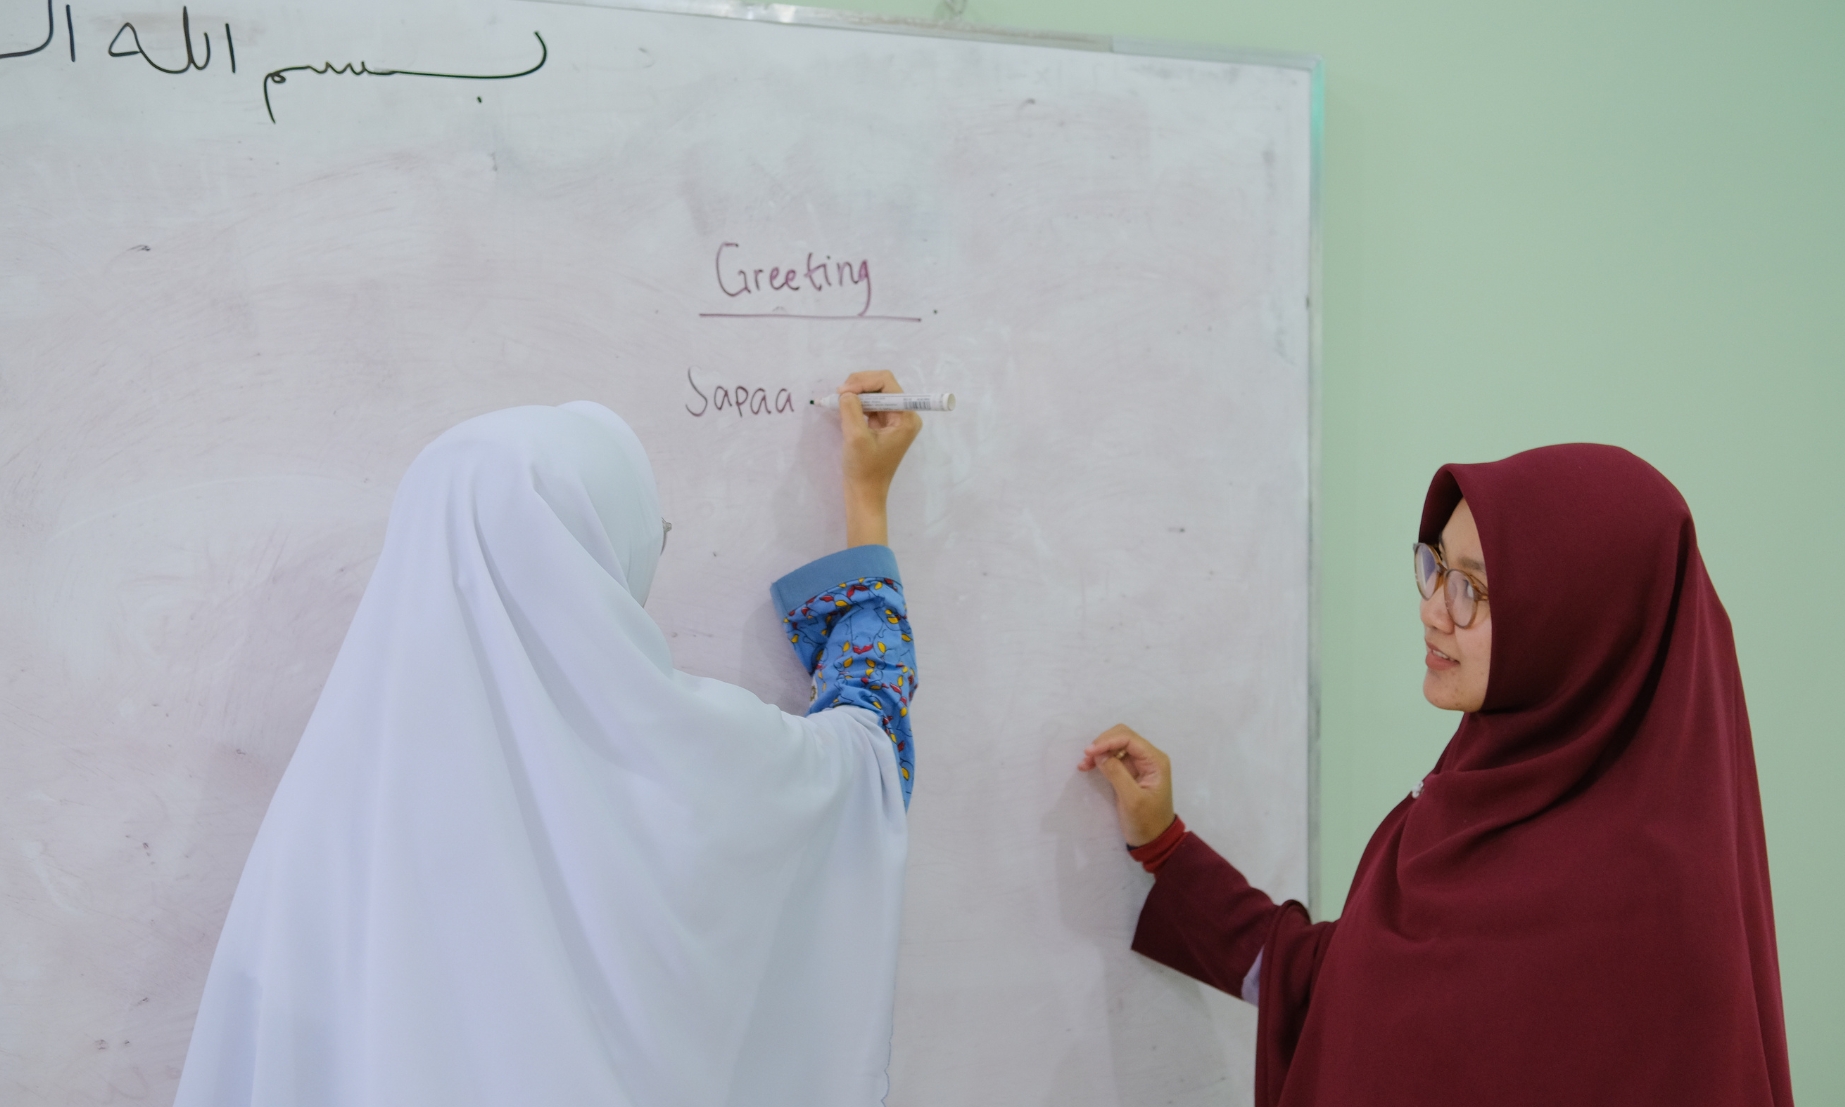 بسم الله ال
Greeting
Sapaa